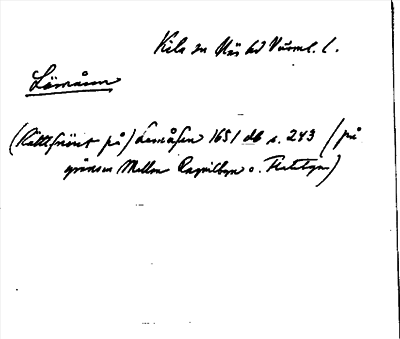 Kila sn Näs hd Värml. l.
Lömåsen
(Rättfränt på) Lemåsen 1651 db s. 243 (på
gränsen Mellan Ragvilbyn o. Flatbyn)